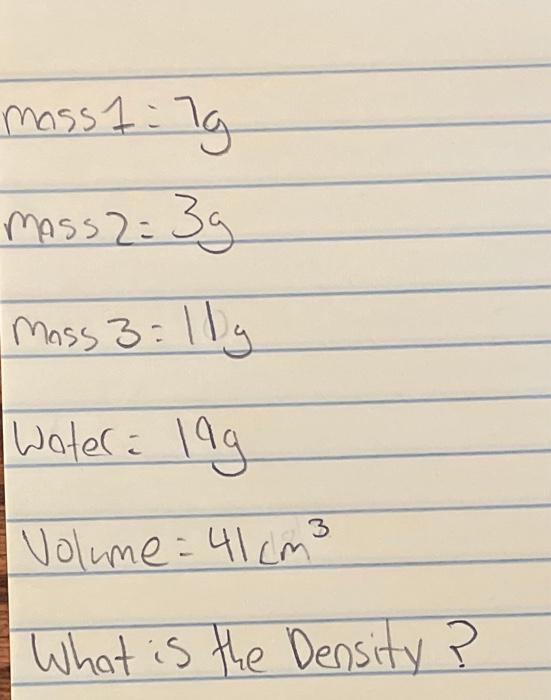 mass 1 = 7g
mass 2 = 3g
mass 3 = 11g
Water = 19g
Volume = 41 cm³
What is the Density?